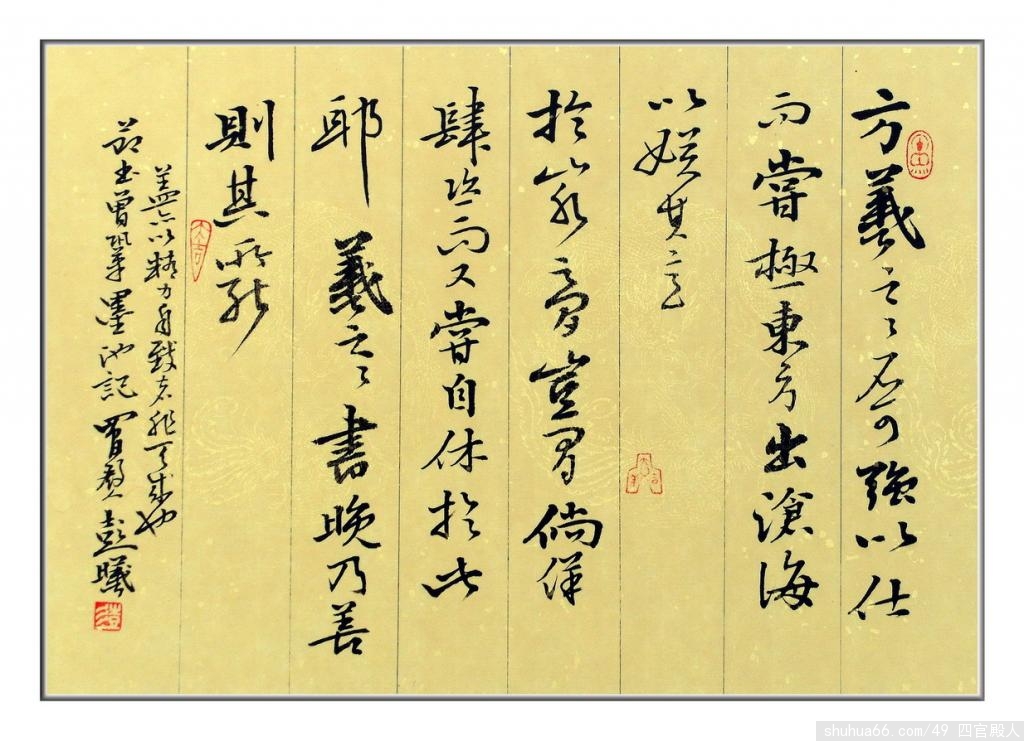 方羲之之不可強以仕
而嘗極東方出滄海
以娛其意
於山水之間豈有徜徉
肆恣而又嘗自休於此
耶羲之之書晚乃善
則其所能
蓋亦以精力自致者非天成也
節書曾鞏墨池記彭曦
shuhua66.com/49 四官殿人